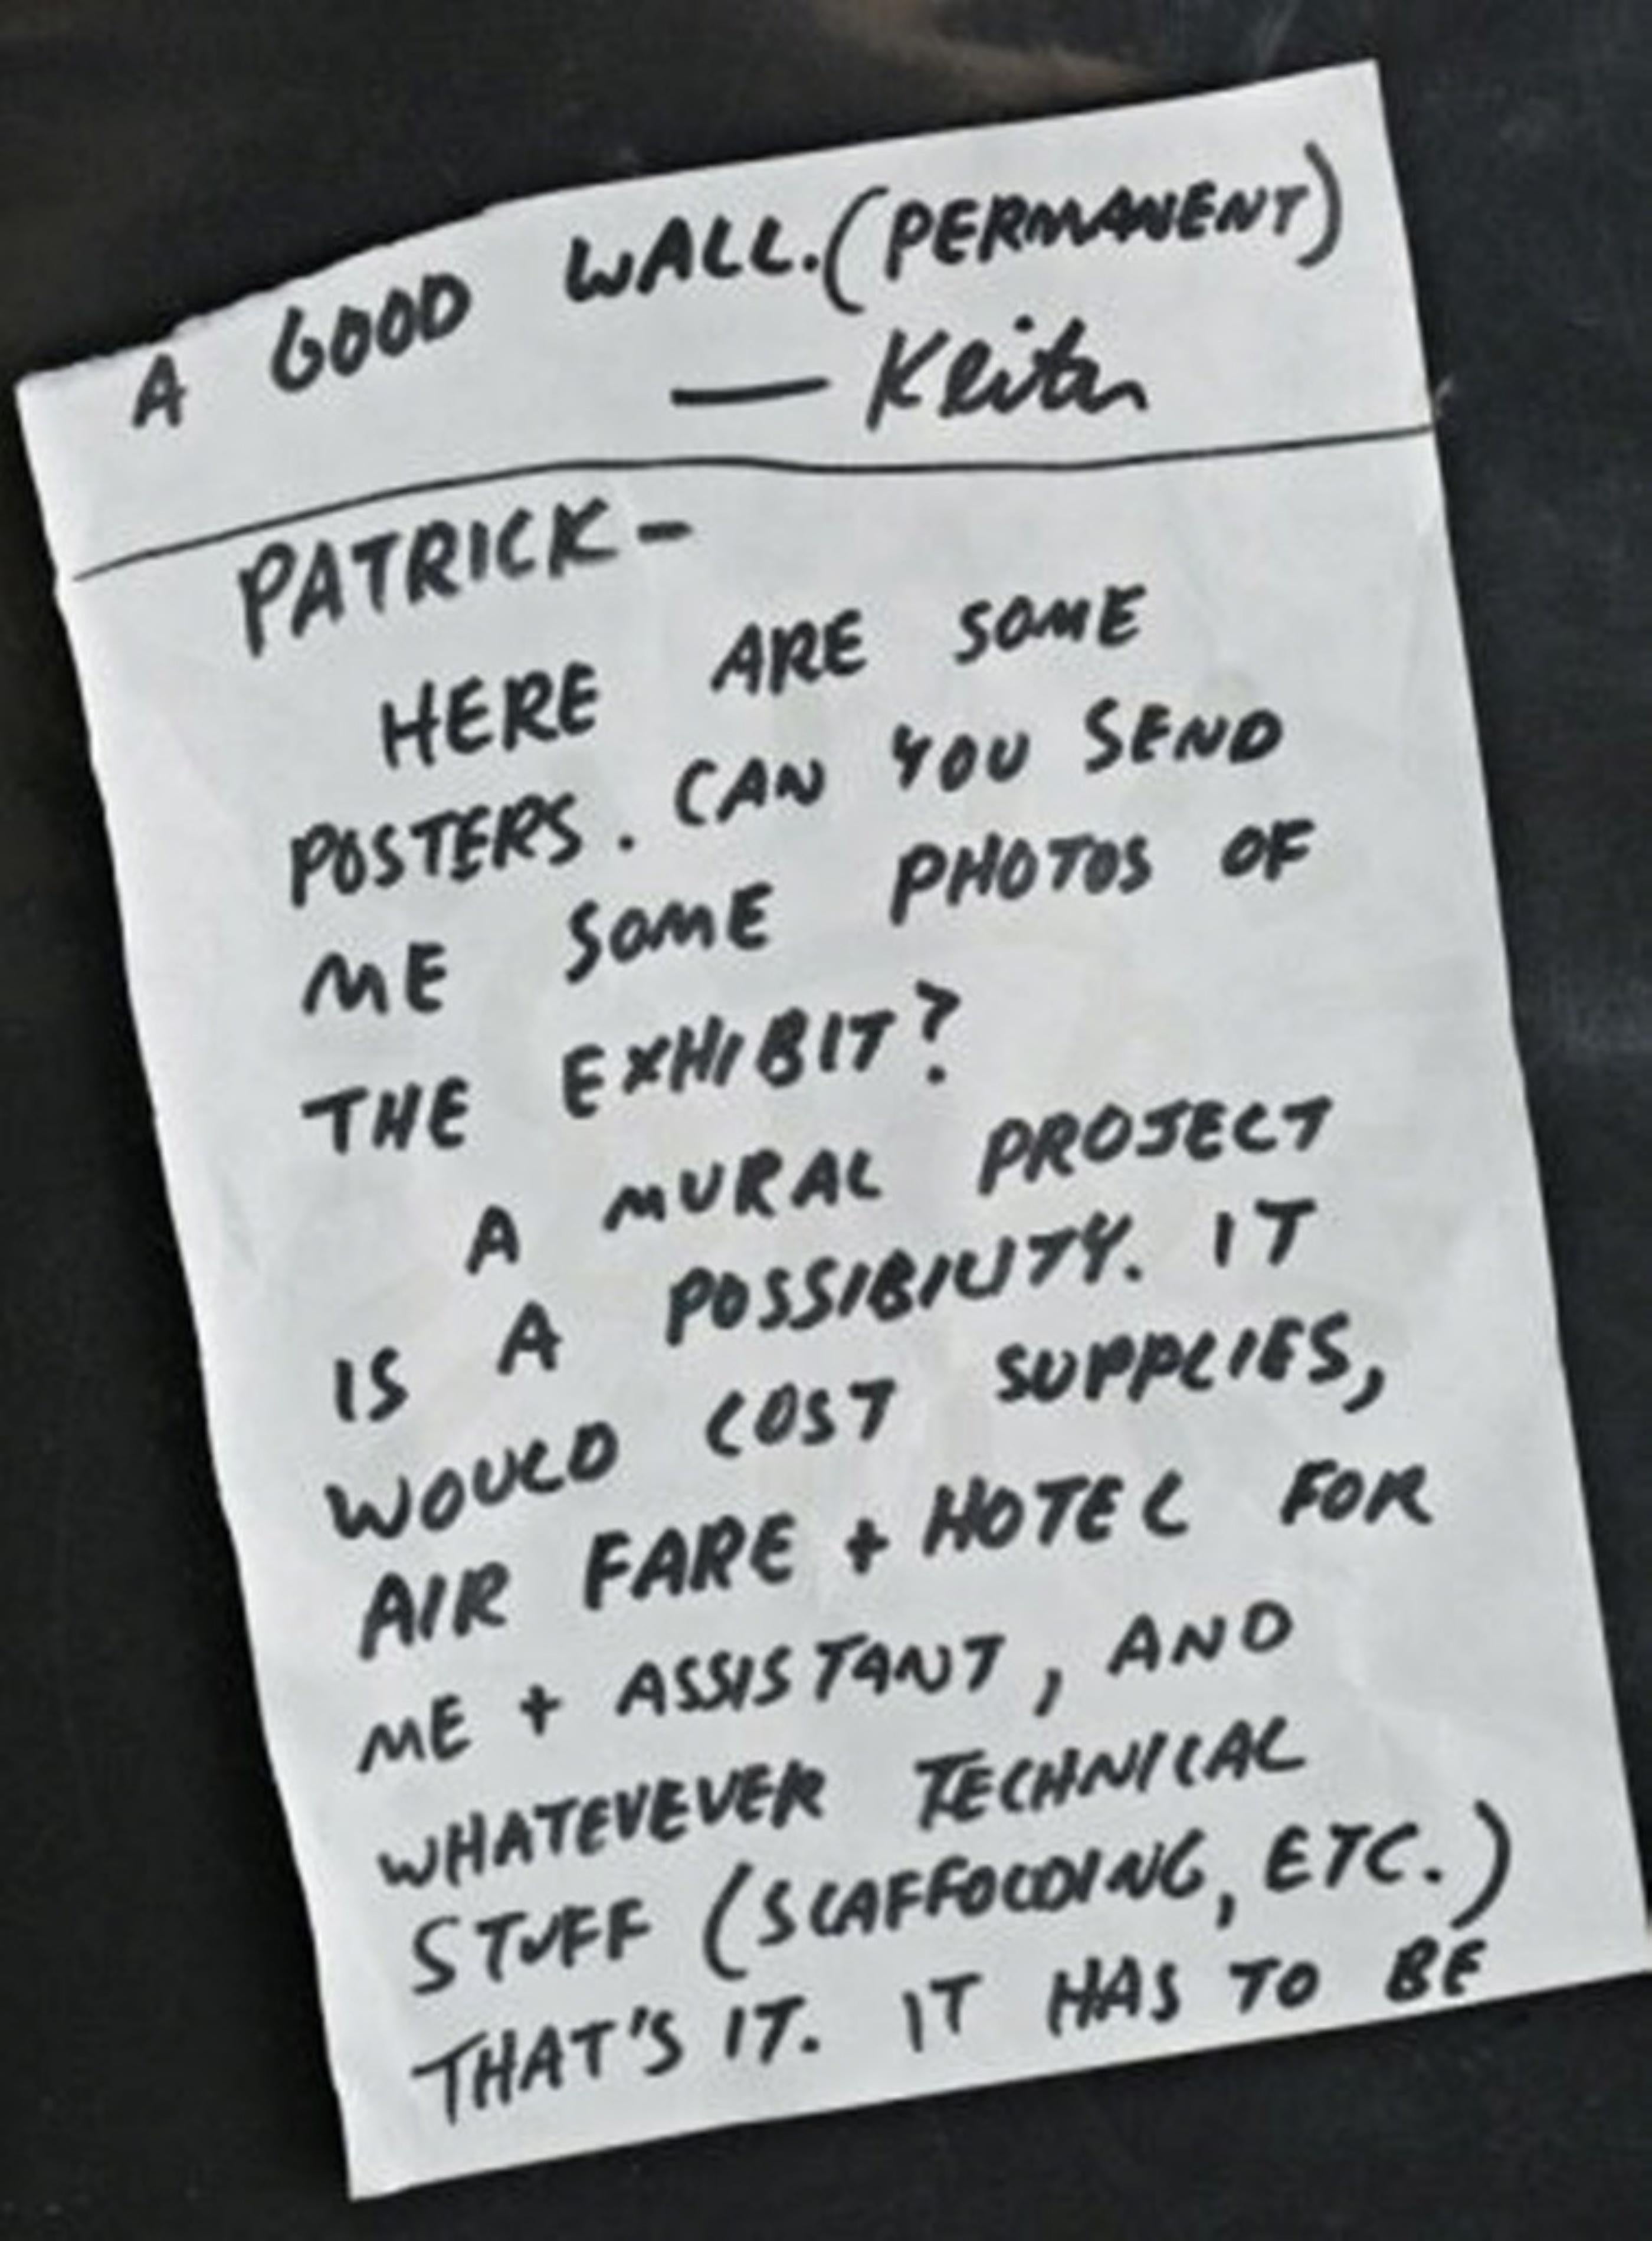 A GOOD WALL. (PERMANENT)
— Keith
PATRICK -
HERE ARE SOME
POSTERS. CAN YOU SEND
ME SOME PHOTOS OF
THE EXHIBIT?
A MURAL PROJECT
IS A POSSIBILITY. IT
WOULD COST SUPPLIES,
AIR FARE + HOTEL FOR
ME + ASSISTANT, AND
WHATEVEVER TECHNICAL
STUFF (SCAFFOLDING, ETC.)
THAT'S IT. IT HAS TO BE